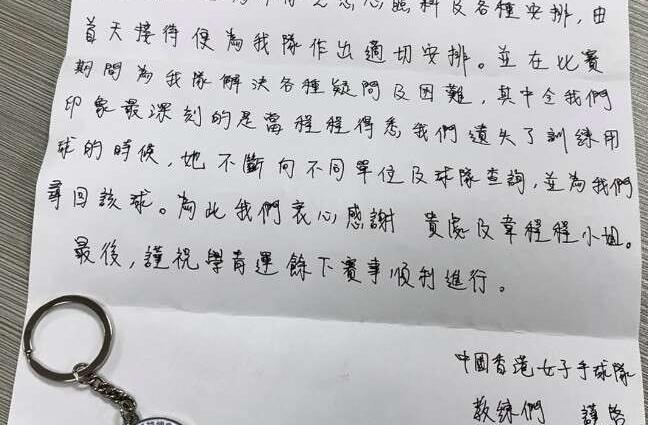 悉心照料及各種安排,由
首天接待便為我隊作出適切安排。並在比賽
期間為我隊解決各種疑問及困難,其中令我們
印象最深刻的是當程程得悉我們遺失了訓練用
球的時候,她不斷向不同單位及球隊查詢,並為我們
尋回該球。為此我們衷心感謝 貴處及韋程程小姐。
最後,謹祝學青運餘下賽事順利進行。
中國香港女子手球隊
教練們 謹啓